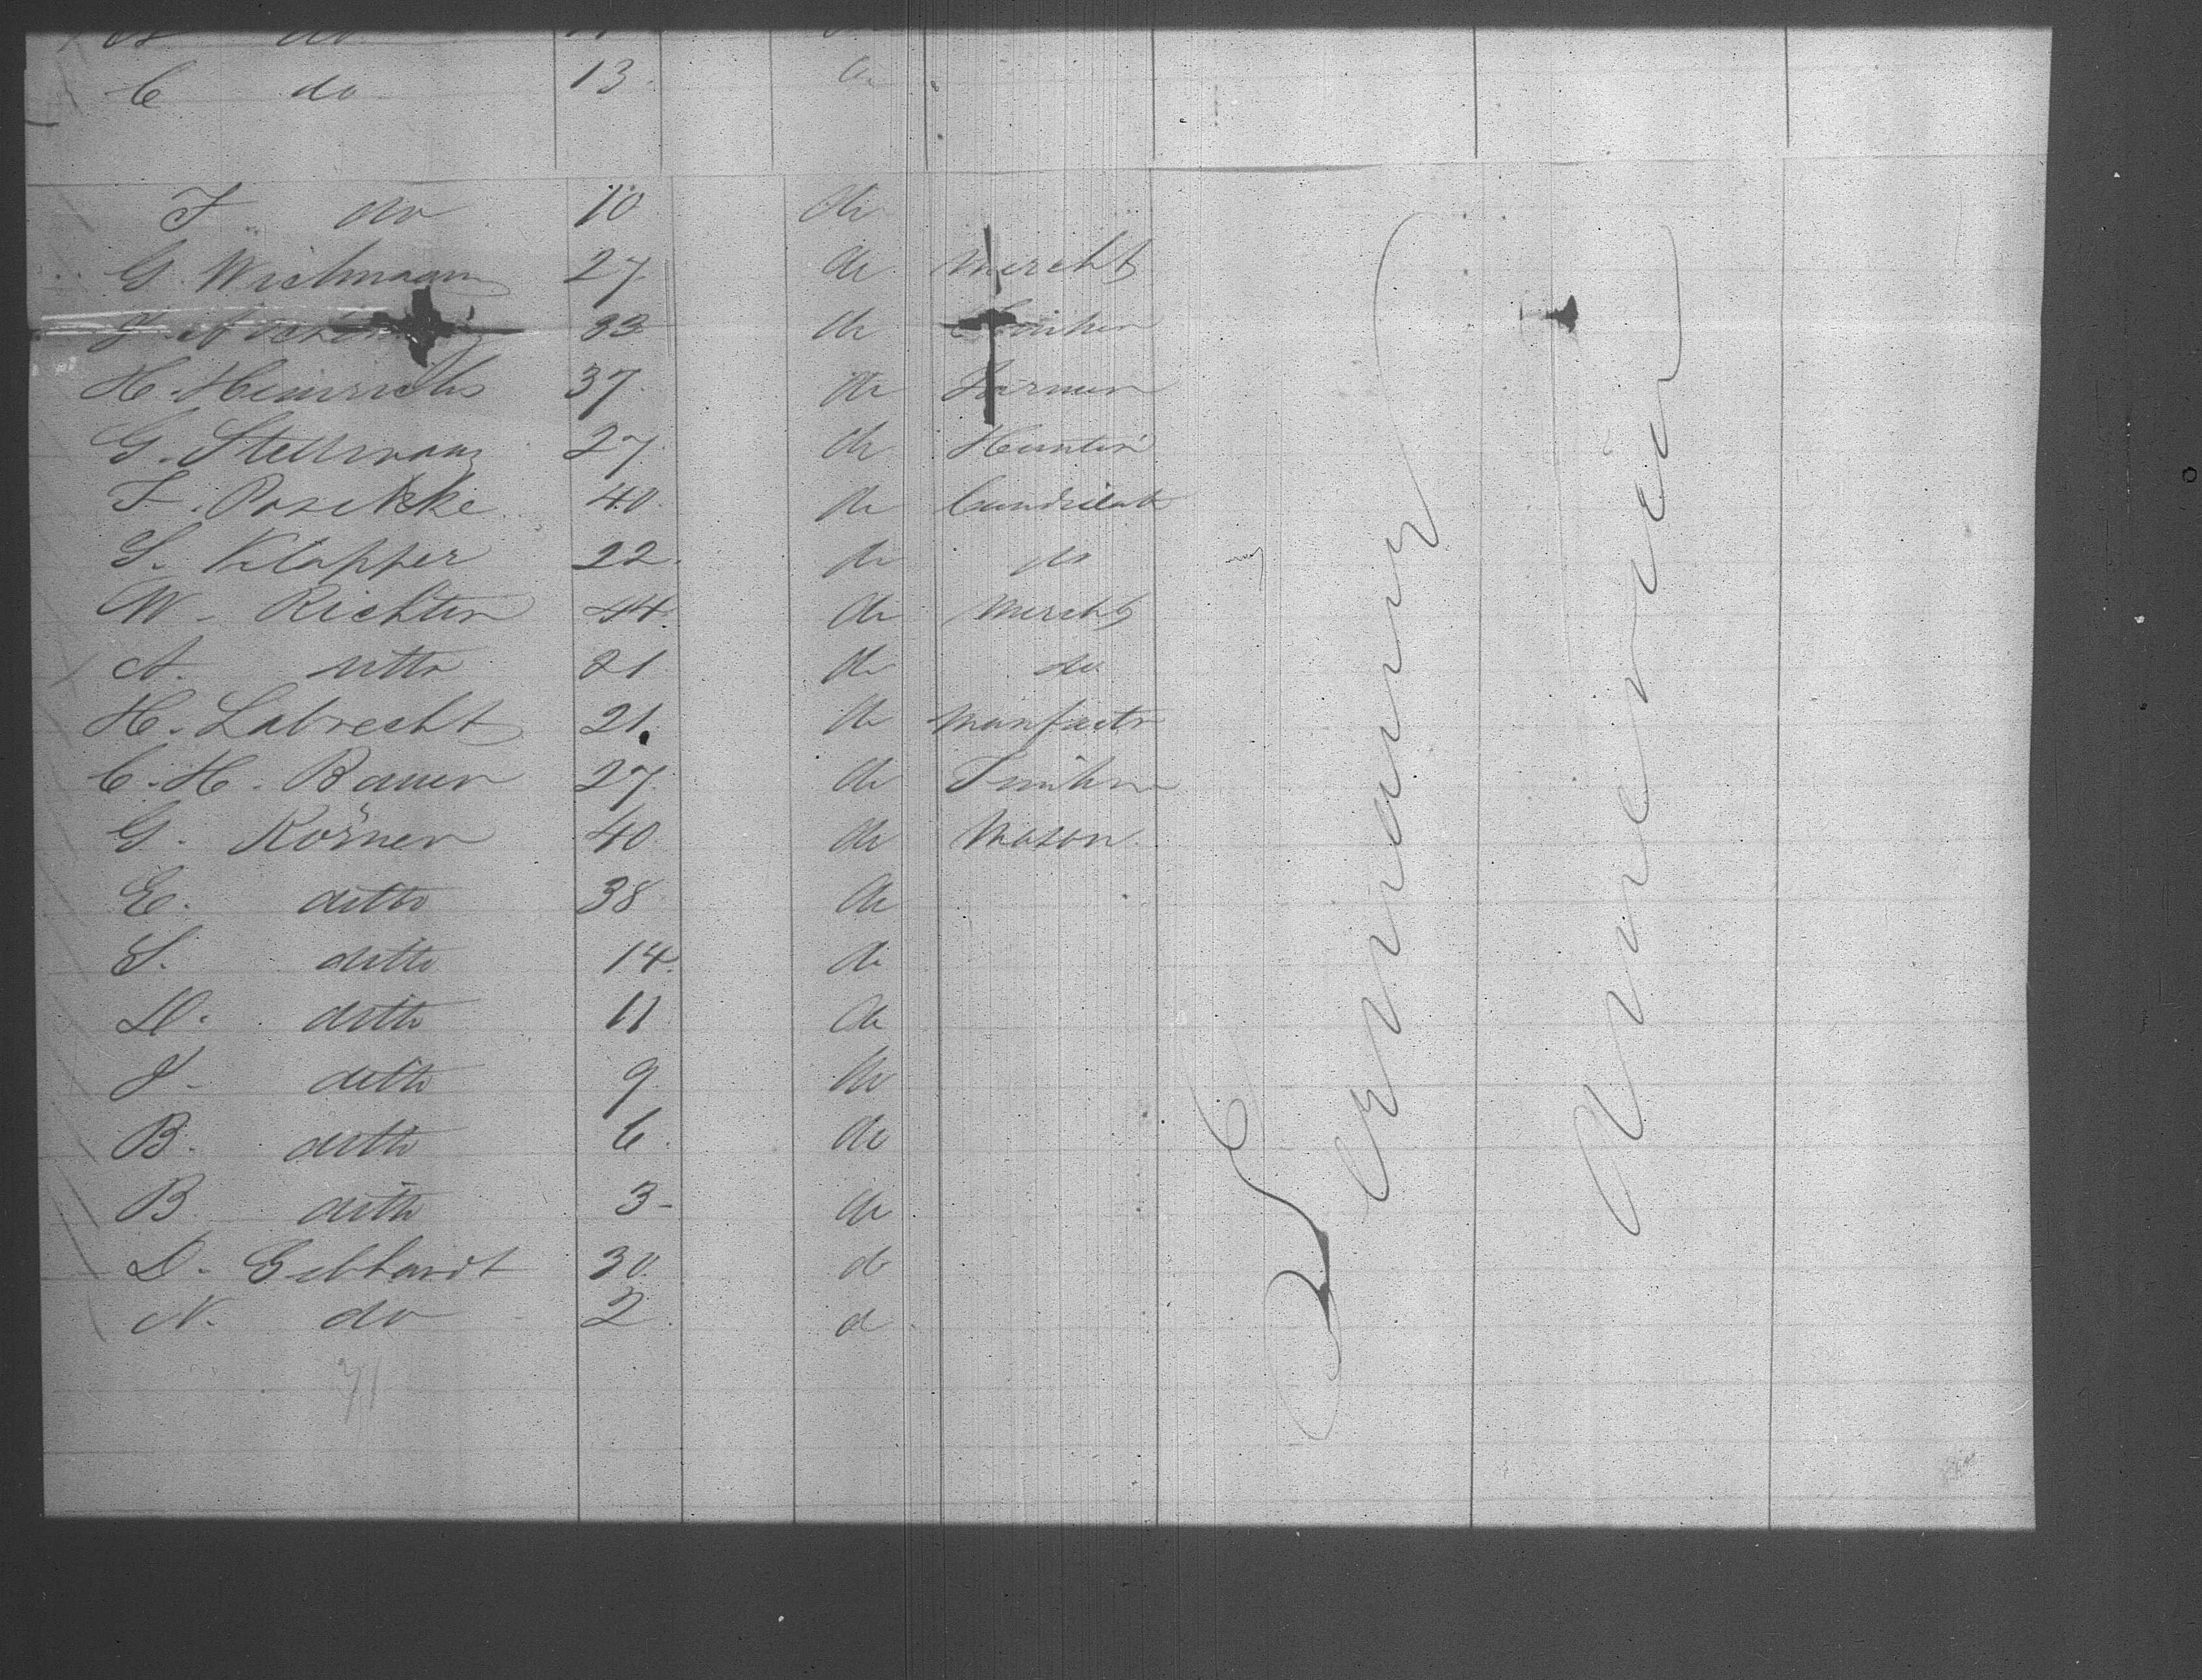 C do 13
F do 10 do
G. Wichmann 27 do Mercht
J. 33 do
H. Heinrichs 37 do Farmer
G. Stellmann 27 do Hunter
F. Paschke 40 do Candidate
S. Klapper 22 do do
W. Richter 44 do Mercht
A. ditto 21 do do
H. Labrecht 21 do Manfactr
C. H. Bauer 27 do
G. Körner 40 do Mason
E. ditto 38 do
S. ditto 14 do
H. ditto 11 do
J. ditto 9 do
B. ditto 6 do
B ditto 3 do
D. Gebhardt 30 do
N. do 2 d
71
Germany
America